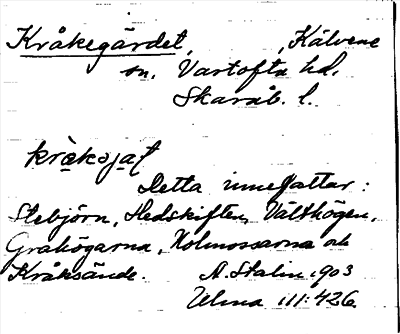 Kråkegärdet, Kälvene
sn. Vartofta hd.
Skarab. l.
kràkəja̤t
Detta innefattar:
Stebjörn, Hedskiften, Vålthögen,
Grahögarna, Holmossarna och
Kråksände. A. Stalin 1903
Ulma 111:426.